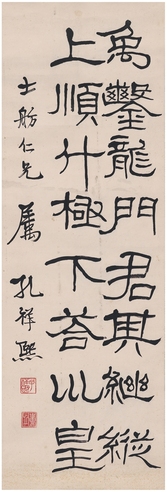 禹鑿龍門君其繼縱
上順斗極下荅巛皇
士舫仁兄 屬 孔祥熙